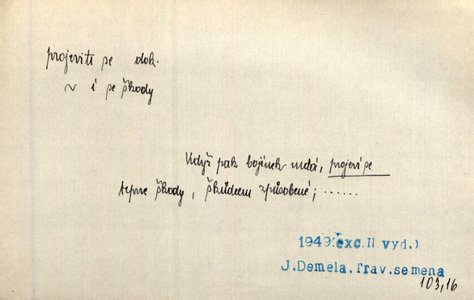 projeviti se dok.
~ i se škody
Když pak bojínek uzdá, projeví se
teprve škody, škůdcem způsobené; ......
1949 (exc. II vyd.)
J. Demela, Trav. semena
103,16